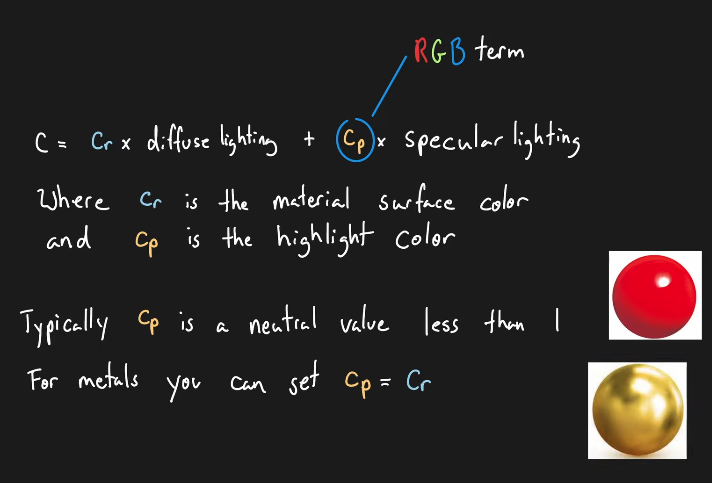 RGB term
C = Cr x diffuse lighting + Cp x specular lighting
Where Cr is the material surface color
and Cp is the highlight color
Typically Cp is a neutral value less than 1
For metals you can set Cp = Cr